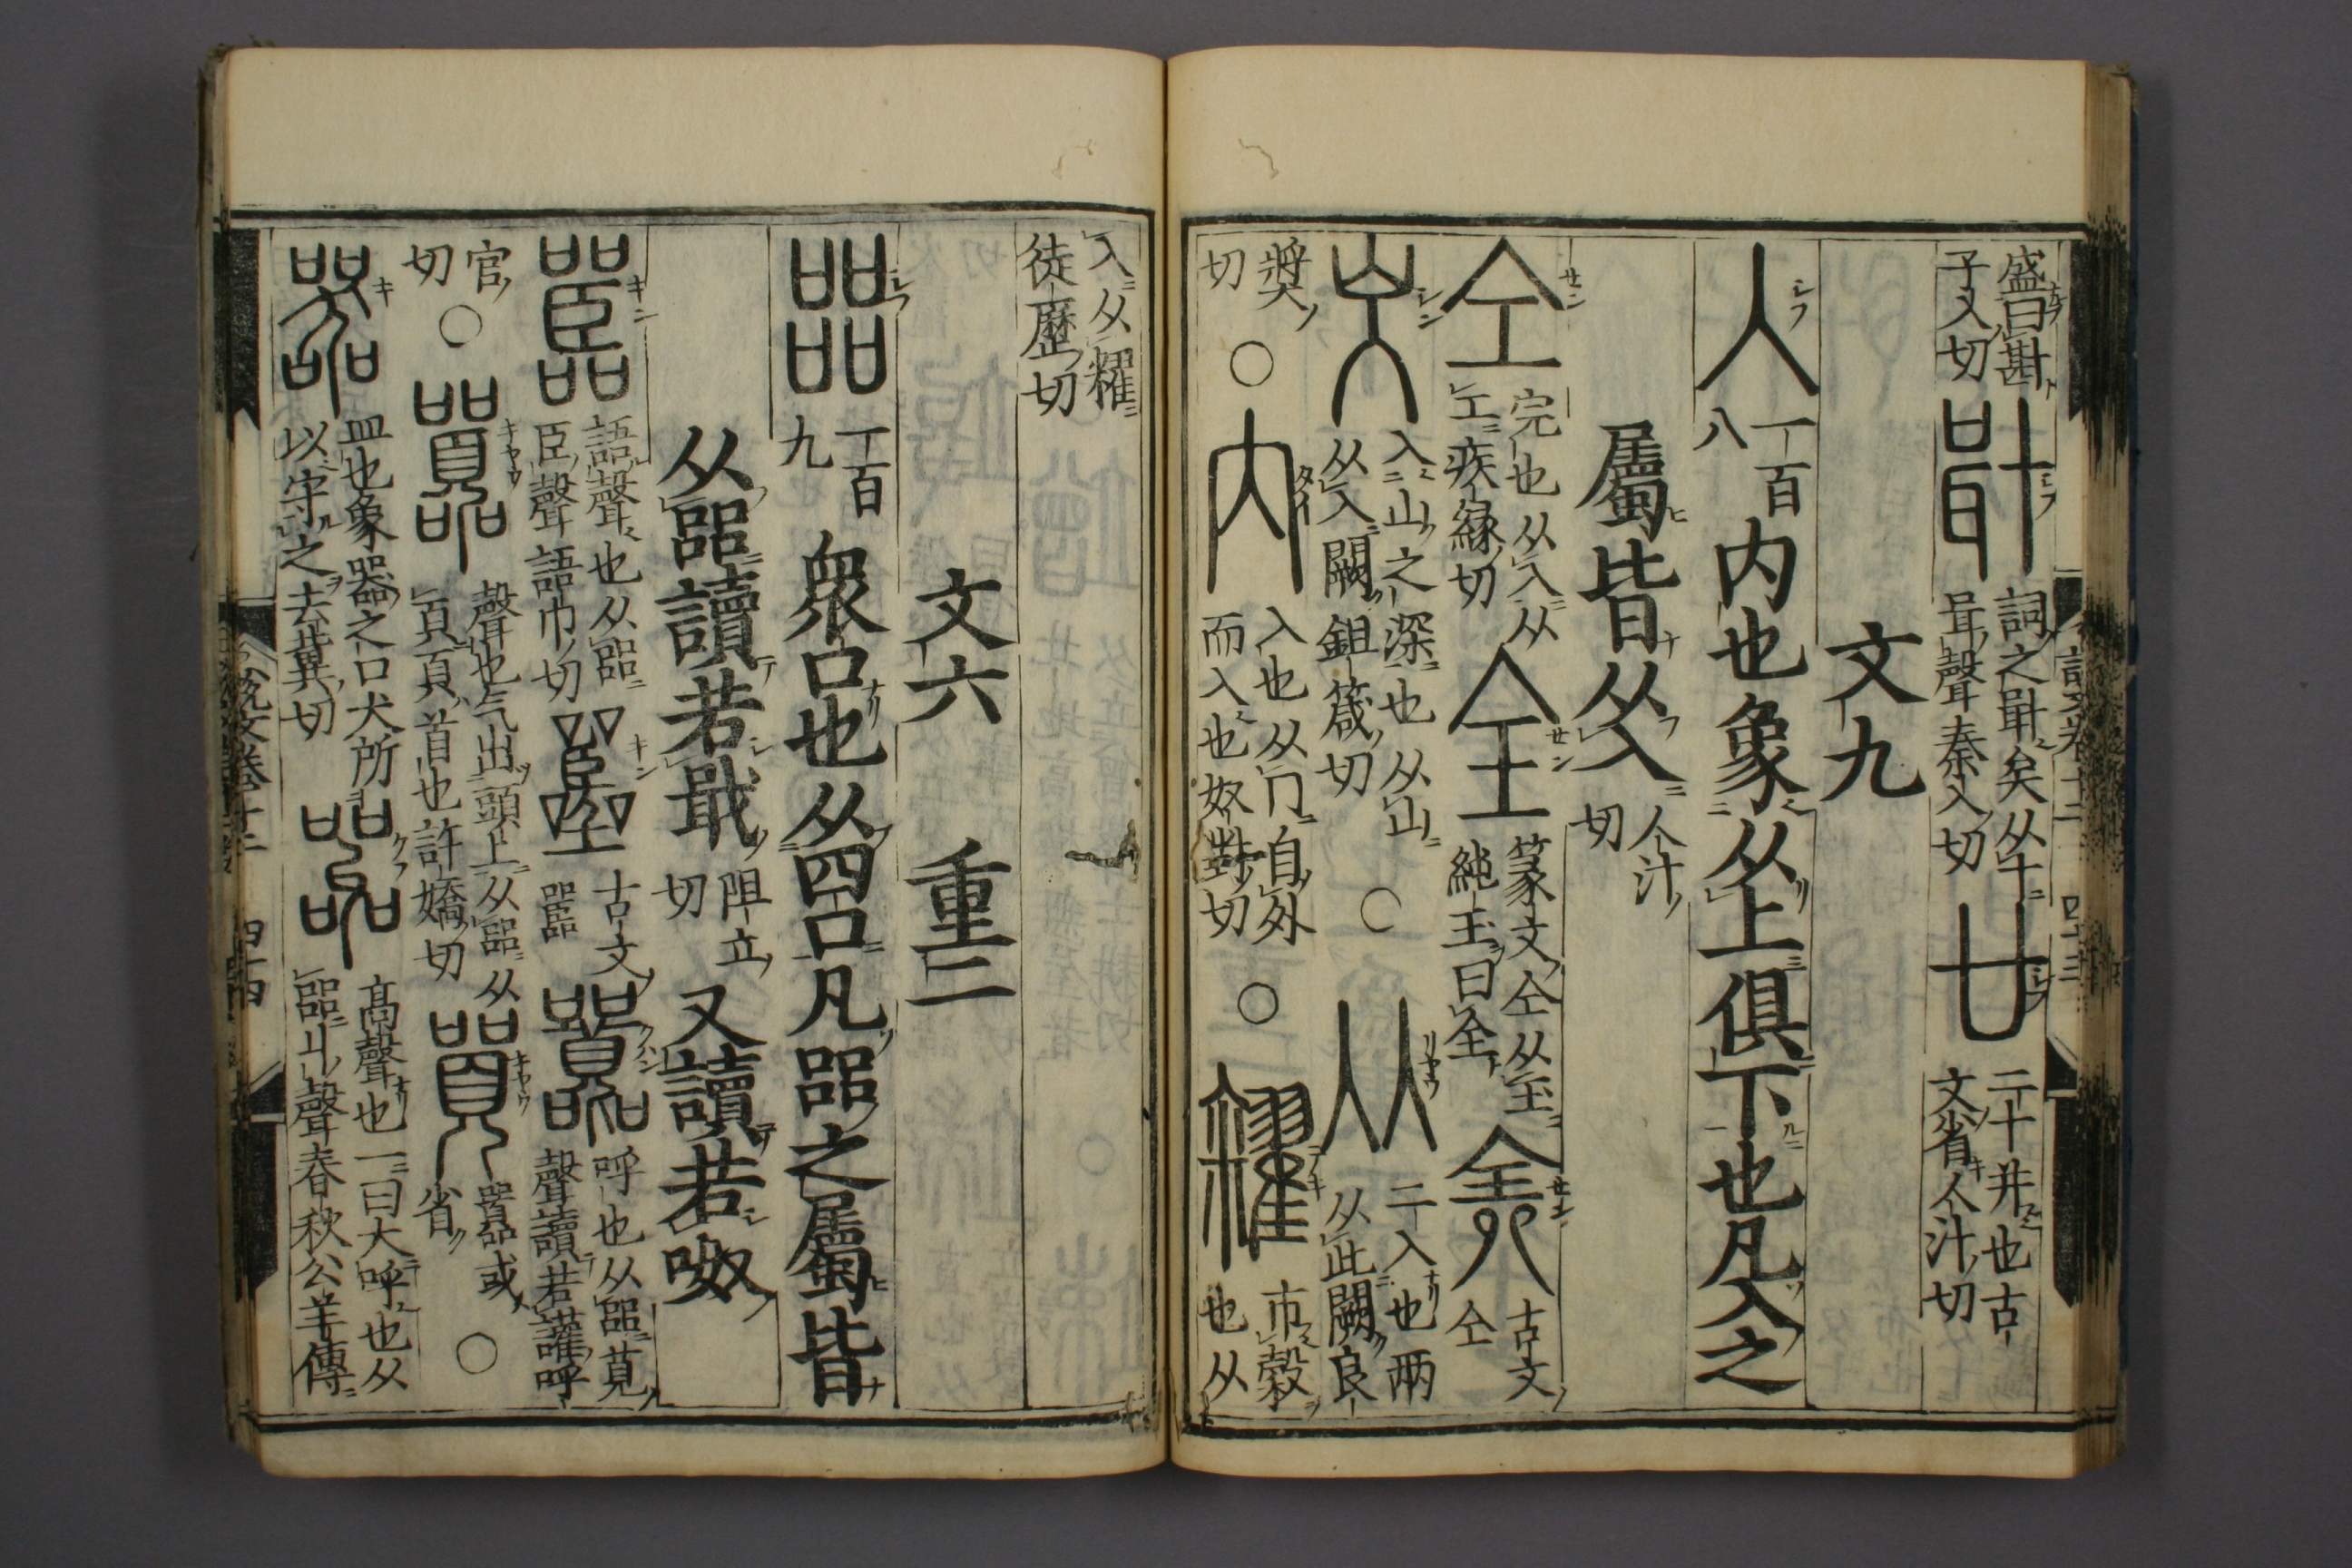 盛曰斟
子入切
詞之𠦫矣从十
咠聲秦入切
廿
二十幷也古
文省人汁切
文九
入
一百
八
内也象从上俱下也凡入之
屬皆从入
人汁
切
仝
完也从入从
工疾緣切
全
篆文仝从玉
純玉曰全
古文
仝
入山之深也从山
从入闕鉏箴切
○
二入也兩
从此闕良
獎
切
○
內
入也从冂自外
而入也奴對切
○
糴
市穀
也从
入从糴
徒歷切
文六 重二
㗊
一百
九
衆口也从四口凡㗊之屬皆
从㗊讀若戢
阻立
切
又讀若呶
嚚
語聲也从㗊
臣聲語巾切
古文
嚚
呼也从㗊莧
聲讀若讙呼
官
切
○
囂
聲也气出頭上从㗊从
頁頁首也許嬌切
囂或
省
○
器
皿也象器之口犬所
以守之去冀切
高聲也一曰大呼也从
㗊丩聲春秋公羊傳
說文卷十二 四十三
說文卷十二 四十四